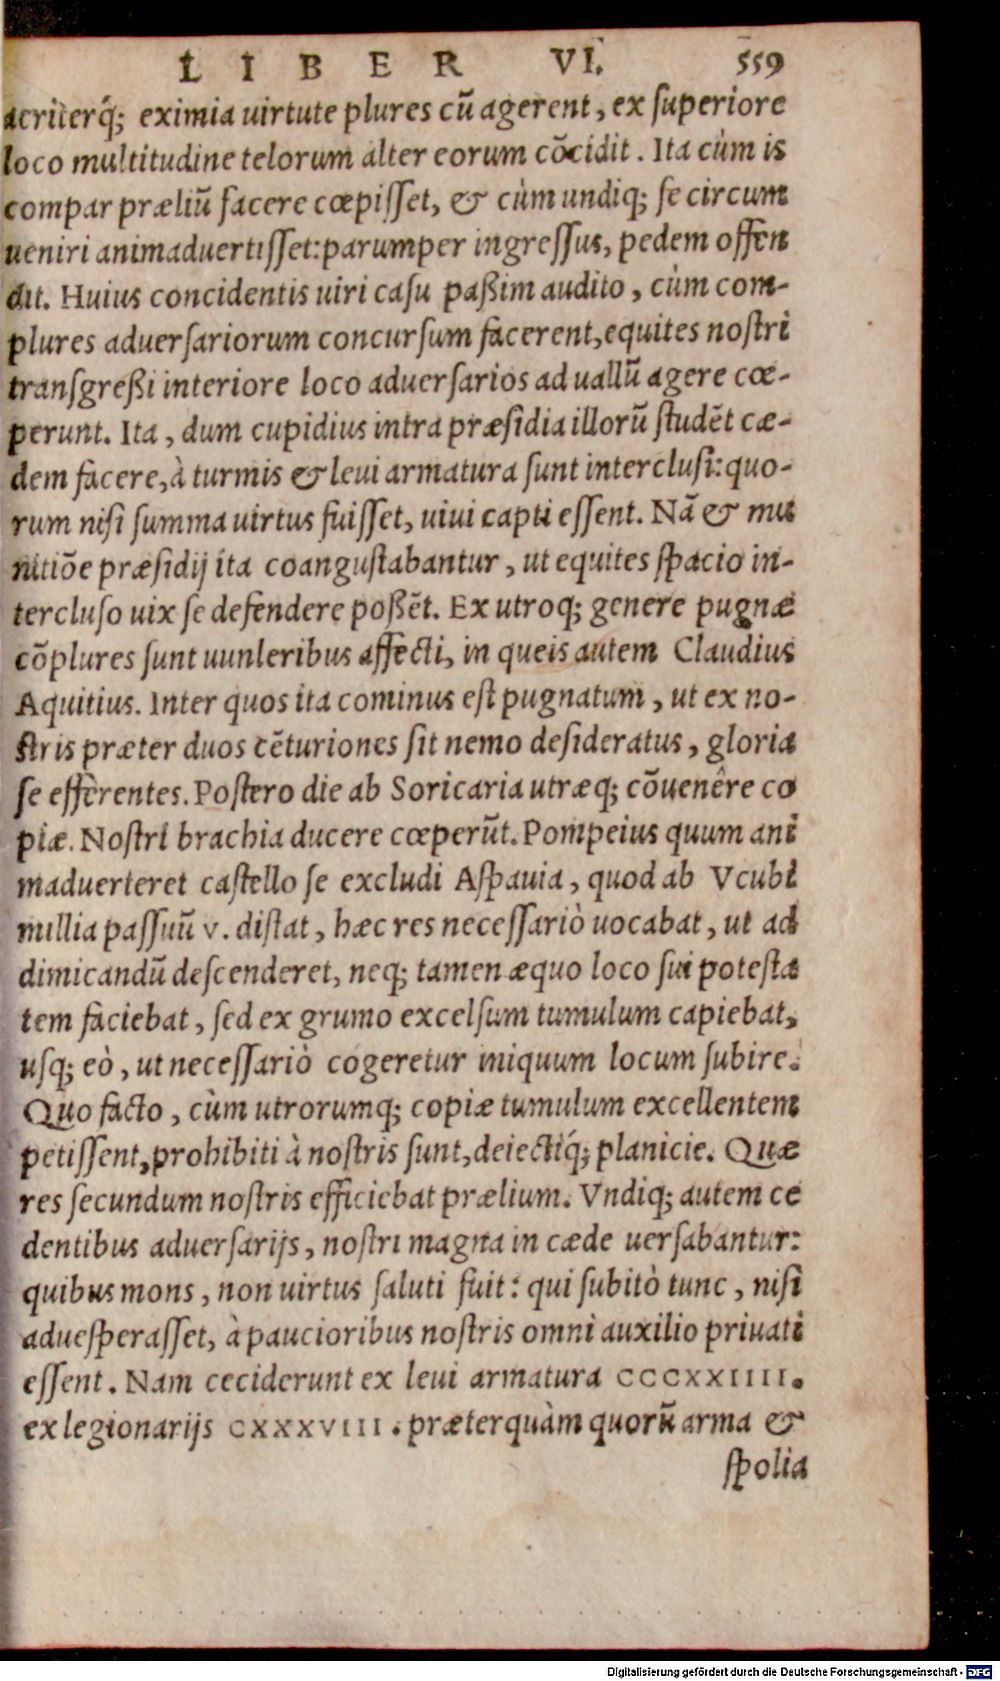 LIBER VI. 559
acriterq́; eximia uirtute plures cū agerent, ex ſuperiore
loco multitudine telorum alter eorum cōcidit. Ita cùm is
compar præliū facere cœpiſſet, & cùm undiq; ſe circum
ueniri animaduertiſſet: parumper ingreſſus, pedem offen
dit. Huius concidentis uiri caſu paßim audito, cùm com-
plures aduerſariorum concurſum facerent, equites noſtri
tranſgreßi interiore loco aduerſarios ad uallū agere cœ-
perunt. Ita, dum cupidius intra præſidia illorū ſtudēt cæ-
dem facere, à turmis & leui armatura ſunt intercluſi: quo-
rum niſi ſumma uirtus fuiſſet, uiui capti eſſent. Nā & mu
nitiōe præſidij ita coanguſtabantur, ut equites ſpacio in-
tercluſo uix ſe defendere poßēt. Ex utroq; genere pugnæ
cōplures ſunt uunleribus affecti, in queis autem Claudius
Aquitius. Inter quos ita cominus eſt pugnatum, ut ex no-
ſtris præter duos cēturiones ſit nemo deſideratus, gloria
ſe efferentes. Poſtero die ab Soricaria utræq; cōuenêre co
piæ. Noſtri brachia ducere cœperūt. Pompeius quum ani
maduerteret caſtello ſe excludi Aſpauia, quod ab Vcubi
millia paſſuū v. diſtat, hæc res neceſſariò uocabat, ut ad
dimicandū deſcenderet, neq; tamen æquo loco ſui poteſta
tem faciebat, ſed ex grumo excelſum tumulum capiebat,
uſq; eò, ut neceſſariò cogeretur iniquum locum ſubire.
Quo facto, cùm utrorumq; copiæ tumulum excellentem
petiſſent, prohibiti à noſtris ſunt, deiectiq́; planicie. Quæ
res ſecundum noſtris efficiebat prælium. Vndiq; autem ce
dentibus aduerſarijs, noſtri magna in cæde uerſabantur:
quibus mons, non uirtus ſaluti fuit: qui ſubitò tunc, niſi
adueſperaſſet, à paucioribus noſtris omni auxilio priuati
eſſent. Nam ceciderunt ex leui armatura CCCXXIIII.
ex legionarijs CXXXVIII. præterquàm quorū arma &
ſpolia
Digitalisierung gefördert durch die Deutsche Forschungsgemeinschaft - DFG